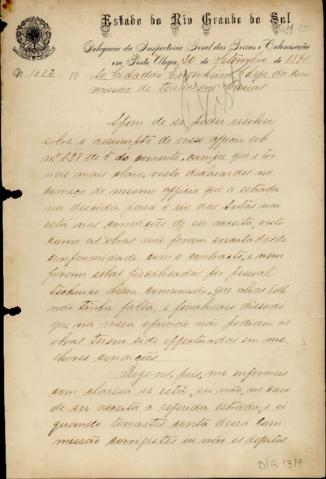 Estado do Rio Grande do Sul
Delegacia da Inspectoria Geral das Terras e Colonisação
em Porto Alegre, 20 de Setembro de 1890
N. 1022 Ao Cidadão Engenheiro Chefe da Com
missão de terras em Caxias
Afim de se poder resolver
sobre o assumpto de vosso officio sob
nº 628 de 5 do corrente, cumpre que o tor
neis mais claro, visto declarardes no
começo do mesmo officio que a estrada
na descida para o rio das Antas não
está nas condições de ser acceita, visto
como as obras não foram executadas de
conformidade com o contracto, e nem
foram estas fiscalisadas por pessoal
technico dessa commissão, que alias
não tinha falta, e finalisaes dizendo
que na vossa opinião não podiam as
obras terem sido effectuadas em me
lhores condições.
pois, me informeis
com claresa se está, ou não, no caso
de ser acceita a referida estrada, e si
quando tomastes conta dessa com
missão corrigistes ou não os defeitos
DIR 1317